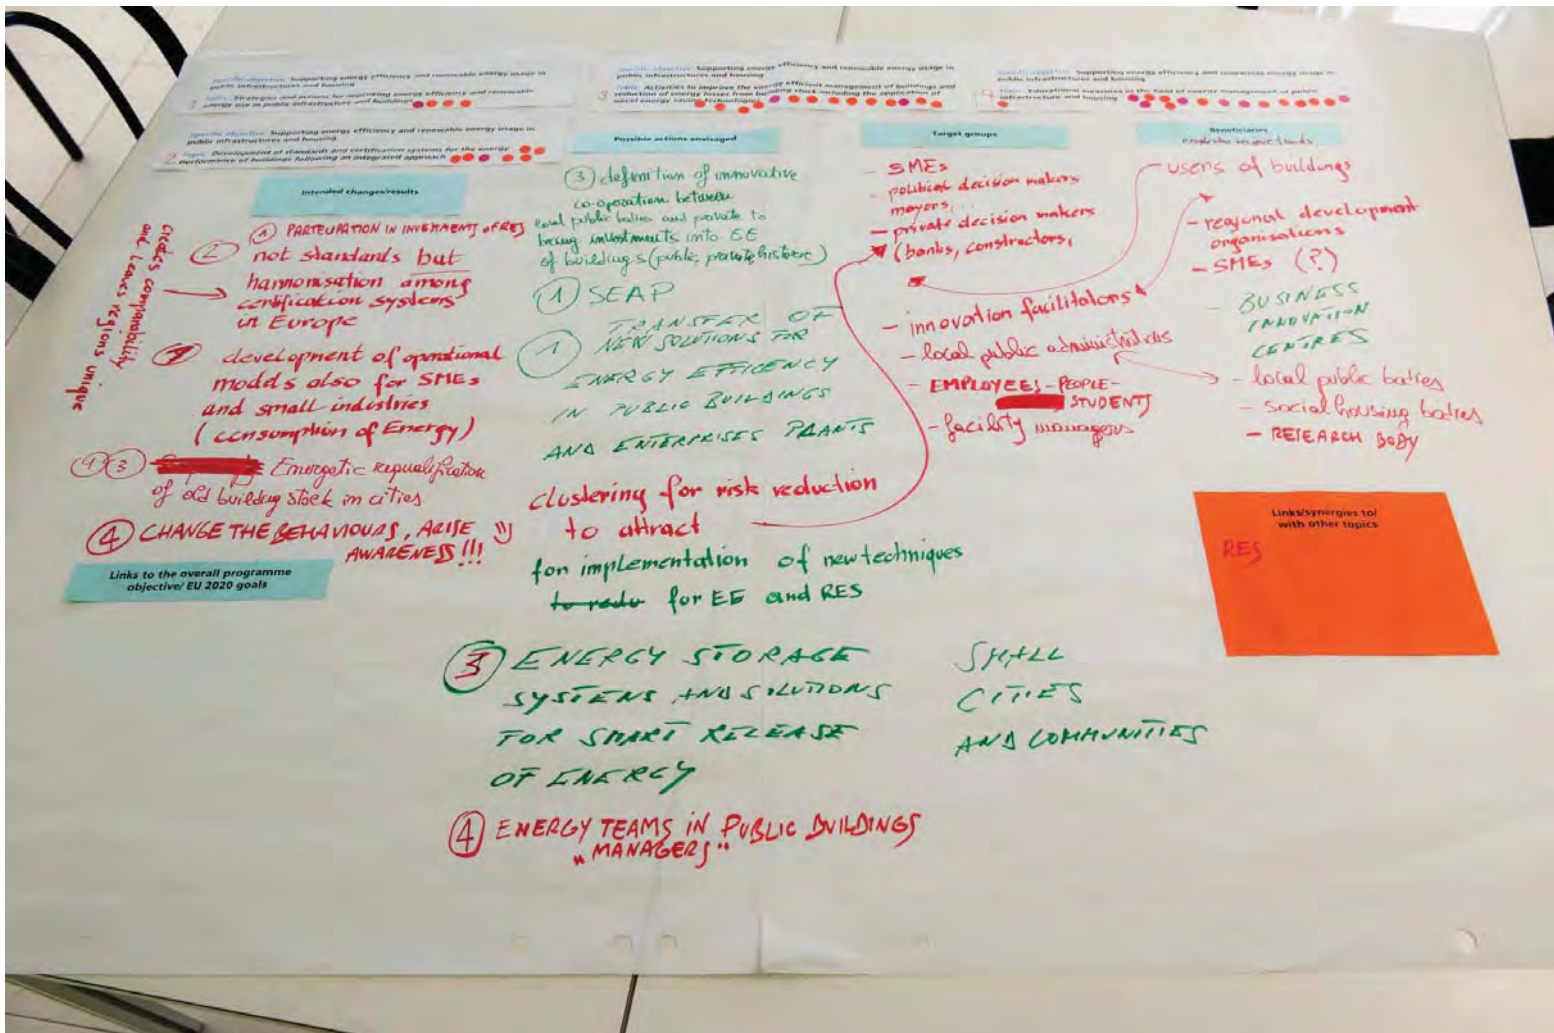 Specific objective: Supporting energy efficiency and renewable energy usage in
public infrastructures and housing
1 Topic: Strategies and actions for improving energy efficiency and renewable
energy use in public infrastructure and buildings
Specific objective: Supporting energy efficiency and renewable energy usage in
public infrastructures and housing
2 Topic: Development of standards and certification systems for the energy
performance of buildings following an integrated approach
Specific objective: Supporting energy efficiency and renewable energy usage in
public infrastructures and housing
3 Topic: Activities to improve the energy efficient management of buildings and
reduction of energy losses from building stock including the application of
novel energy saving technologies
Specific objective: Supporting energy efficiency and renewable energy usage in
public infrastructures and housing
4 Topic: Educational measures in the field of energy management of public
infrastructure and housing
Intended changes/results
1 PARTECIPATION IN INVESTMENTS OF RES
2 not standards but
harmonisation among
certification systems
in Europe
creates comparability
and leaves regions unique
1 development of operational
models also for SMEs
and small industries
(consumption of Energy)
1 3 Energetic requalification
of old building stock in cities
4 CHANGE THE BEHAVIOURS, ARISE
AWARENESS!!!
Links to the overall programme
objective/ EU 2020 goals
Possible actions envisaged
3 definition of innovative
co-operation between
local public bodies and private to
bring investments into EE
of buildings (public, private, historic)
1 SEAP
1 TRANSFER OF
NEW SOLUTIONS FOR
ENERGY EFFICENCY
IN PUBLIC BUILDINGS
AND ENTERPRISES PLANTS
clustering for risk reduction
to attract
for implementation of new techniques
to redu for EE and RES
3 ENERGY STORAGE
SYSTEMS AND SOLUTIONS
FOR SMART RELEASE
OF ENERGY
SMALL
CITIES
AND COMMUNITIES
4 ENERGY TEAMS IN PUBLIC BUILDINGS
"MANAGERS"
Target groups
- SMEs
- political decision makers
mayors, ...
- private decision makers
(banks, constructors,
- innovation facilitators
- local public administrations
- EMPLOYEES - PEOPLE -
STUDENTS
- facility managers
Beneficiaries
users of buildings
- regional development
organisations
- SMEs (?)
- BUSINESS
INNOVATION
CENTRES
- local public bodies
- social housing bodies
- RESEARCH BODY
Links/synergies to/
with other topics
RES